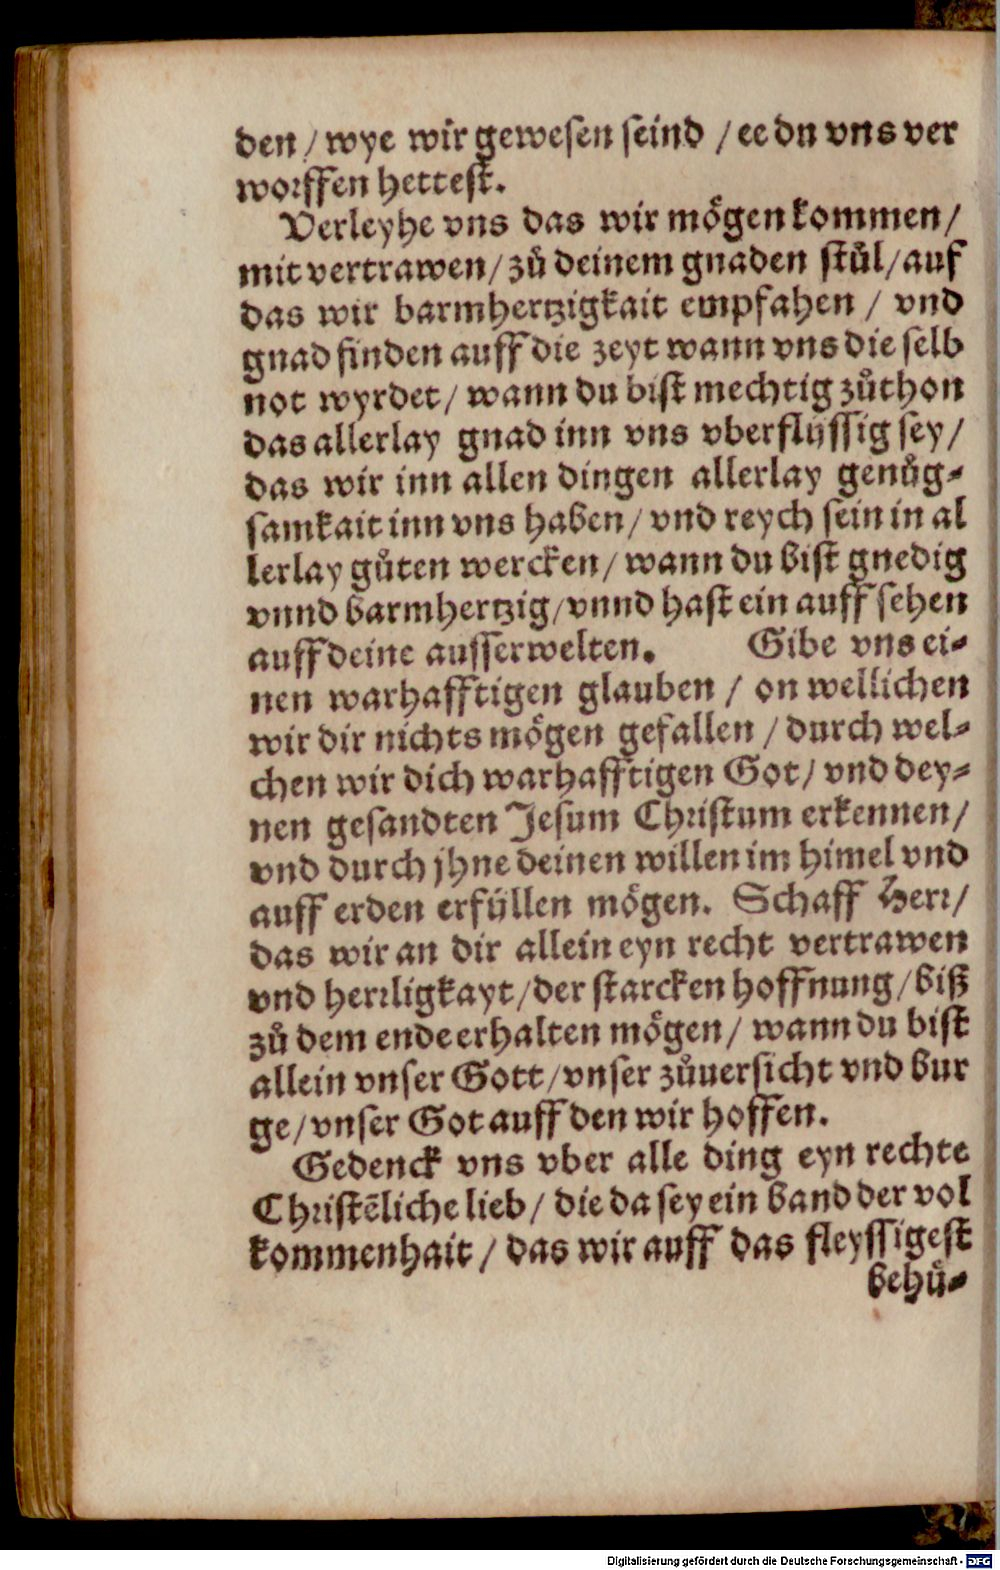 den / wye wir gewesen seind / ee du vns ver
worffen hettest.
Verleyhe vns das wir mögen kommen /
mit vertrawen / zů deinem gnaden stůl / auf
das wir barmhertzigkait empfahen / vnd
gnad finden auff die zeyt wann vns die selb
not wyrdet / wann du bist mechtig zůthon
das allerlay gnad inn vns vberflüssig sey /
das wir inn allen dingen allerlay genůg-
samkait inn vns haben / vnd reych sein in al
lerlay gůten wercken / wann du bist gnedig
vnnd barmhertzig / vnnd hast ein auff sehen
auff deine ausserwelten. Gibe vns ei-
nen warhafftigen glauben / on wellichen
wir dir nichts mögen gefallen / durch wel-
chen wir dich warhafftigen Got / vnd dey-
nen gesandten Jesum Christum erkennen /
vnd durch jhne deinen willen im himel vnd
auff erden erfüllen mögen. Schaff Herr /
das wir an dir allein eyn recht vertrawen
vnd herrligkayt / der starcken hoffnung / biß
zů dem ende erhalten mögen / wann du bist
allein vnser Gott / vnser zůuersicht vnd bur
ge / vnser Got auff den wir hoffen.
Gedenck vns vber alle ding eyn rechte
Christẽliche lieb / die da sey ein band der vol
kommenhait / das wir auff das fleyssigest
behů-
Digitalisierung gefördert durch die Deutsche Forschungsgemeinschaft - DFG